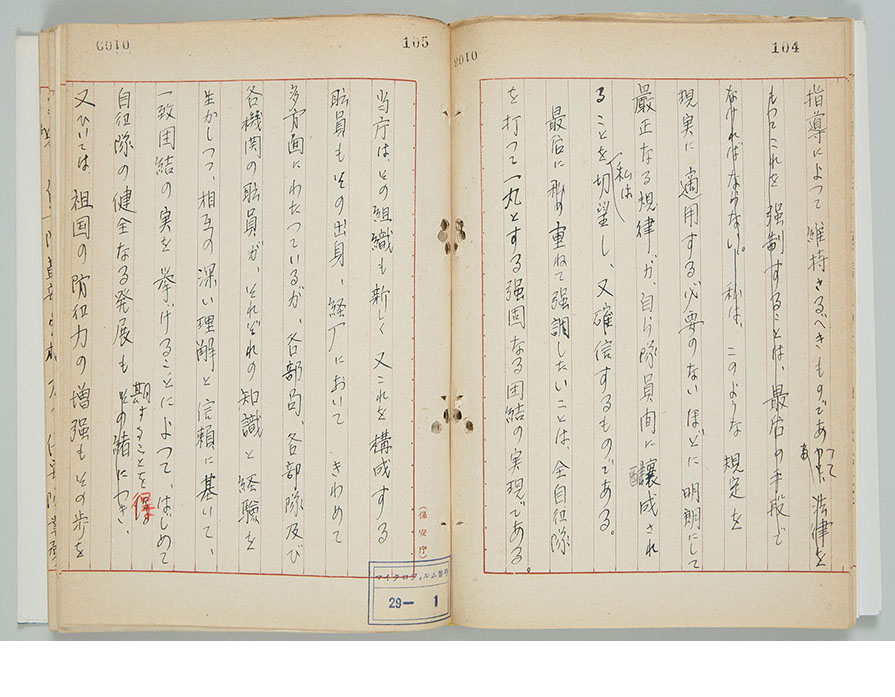 104
0108
指導によつて維持さるべきものであつて法律を
もつてこれを強制することは、最后の手段で
なければならない。私は、このような規定を
現実に適用する必要のないほどに明朗にして
厳正なる規律が、自ら隊員間に醸成され
ることを私は切望し、又確信するものである。
最后に私の重ねて強調したいことは、全自衛隊
を打つて一丸とする強固なる団結の実現である。
105
0109
当庁はその組織も新しく又これを構成する
職員もその出身、経厂においてきわめて
多方面にわたつているが、各部局、各部隊及び
各機関の職員が、それぞれの知識と経験を
生かしつつ、相互の深い理解と信頼に基いて、
一致団結の実を挙げることによつて、はじめて
自衛隊の健全なる発展もその緒につき、
期することを得
又ひいては祖国の防衛力の増強もその歩を
(保安庁)
マイクロフィルム番号
29— 1